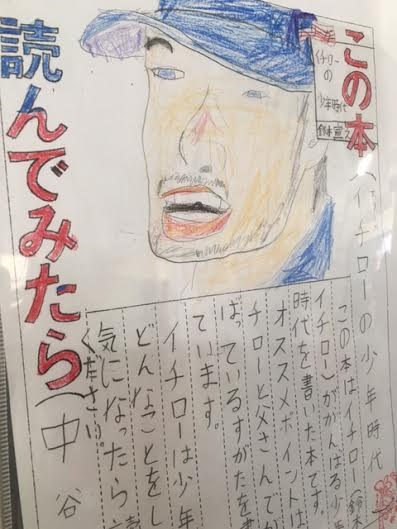 この本
イチロー
の
少年時代
読んでみたら
(イチローの少年時代
この本はイチロー(鈴木
イチロー)ががんばる少
時代を書いた本です。
オススメポイントは
チローと父さんでが
ばっているすがたを書
ています。
イチローは少年
どんなことをし
気になったら読
ください。
(中谷